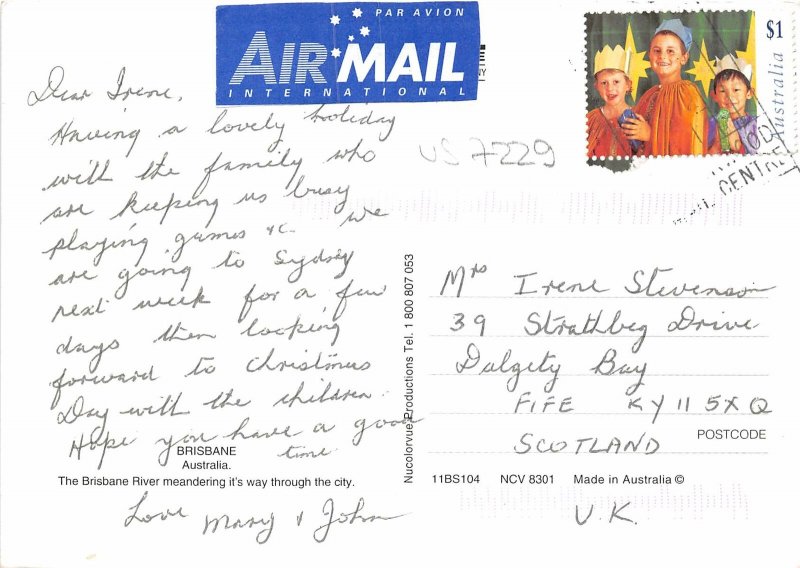 PAR AVION
AIR MAIL
INTERNATIONAL
$1
Australia
Dear Irene,
Having a lovely holiday
with the family who
are keeping us busy
playing games &c. we
are going to Sydney
next week for a few
days then looking
forward to Christmas
Day with the children.
Hope you have a good
time
Love Mary & John
BRISBANE
Australia.
The Brisbane River meandering it's way through the city.
US 7229
CENTRE
Nucolorvue Productions Tel. 1 800 807 053
Mrs Irene Stevenson
39 Strathbeg Drive
Dalgety Bay
FIFE KY11 5XQ
SCOTLAND
POSTCODE
11BS104 NCV 8301 Made in Australia ©
U.K.